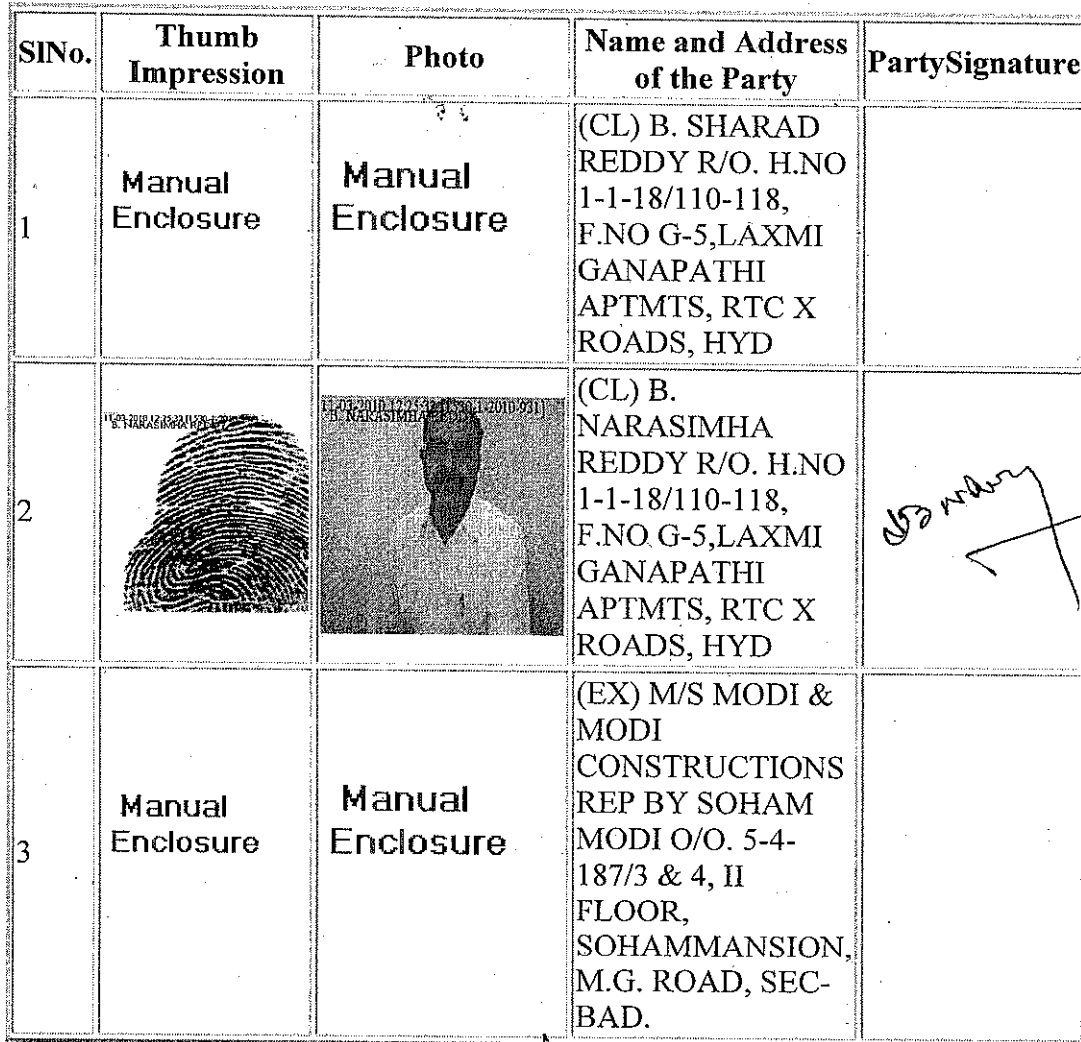 SlNo. Thumb Impression Photo Name and Address of the Party PartySignature
1
Manual
Enclosure
Manual
Enclosure
(CL) B. SHARAD
REDDY R/O. H.NO
1-1-18/110-118,
F.NO G-5,LAXMI
GANAPATHI
APTMTS, RTC X
ROADS, HYD
2
B. NARASIMHA
11-03-2010 12:25:32 [1530-1-2010-931]
B. NARASIMHA REDDY
(CL) B.
NARASIMHA
REDDY R/O. H.NO
1-1-18/110-118,
F.NO G-5,LAXMI
GANAPATHI
APTMTS, RTC X
ROADS, HYD
3
Manual
Enclosure
Manual
Enclosure
(EX) M/S MODI &
MODI
CONSTRUCTIONS
REP BY SOHAM
MODI O/O. 5-4-
187/3 & 4, II
FLOOR,
SOHAMMANSION,
M.G. ROAD, SEC-
BAD.